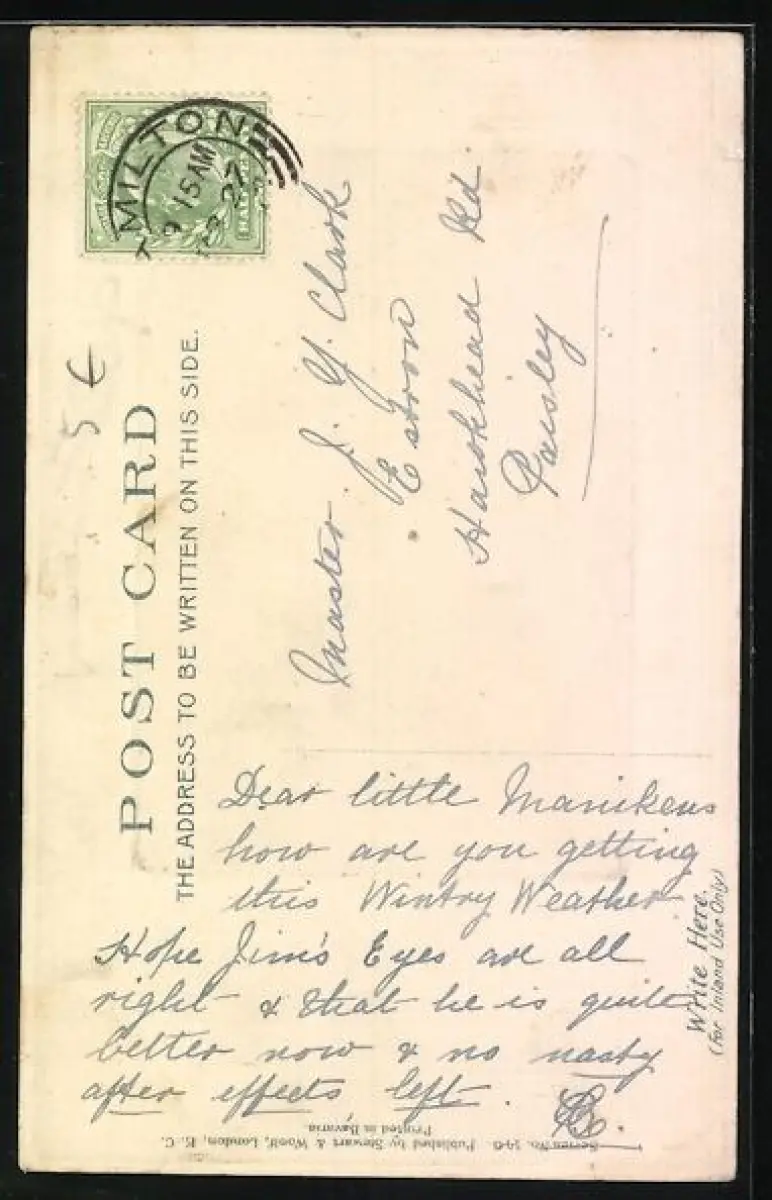 POST CARD
THE ADDRESS TO BE WRITTEN ON THIS SIDE.
MILTON
9 15 AM
27
HALF
5 €
Master J. Y. Clark
Hawkhead Rd
Paisley
Dear little Manikens
how are you getting
this Wintry Weather.
Hope Jim's Eyes are all
right & that he is quite
better now & no nasty
after effects left.
Write Here.
(For Inland Use Only)
Series No. 146 Published by Stewart & Woolf, London, E. C.
Printed in Bavaria.